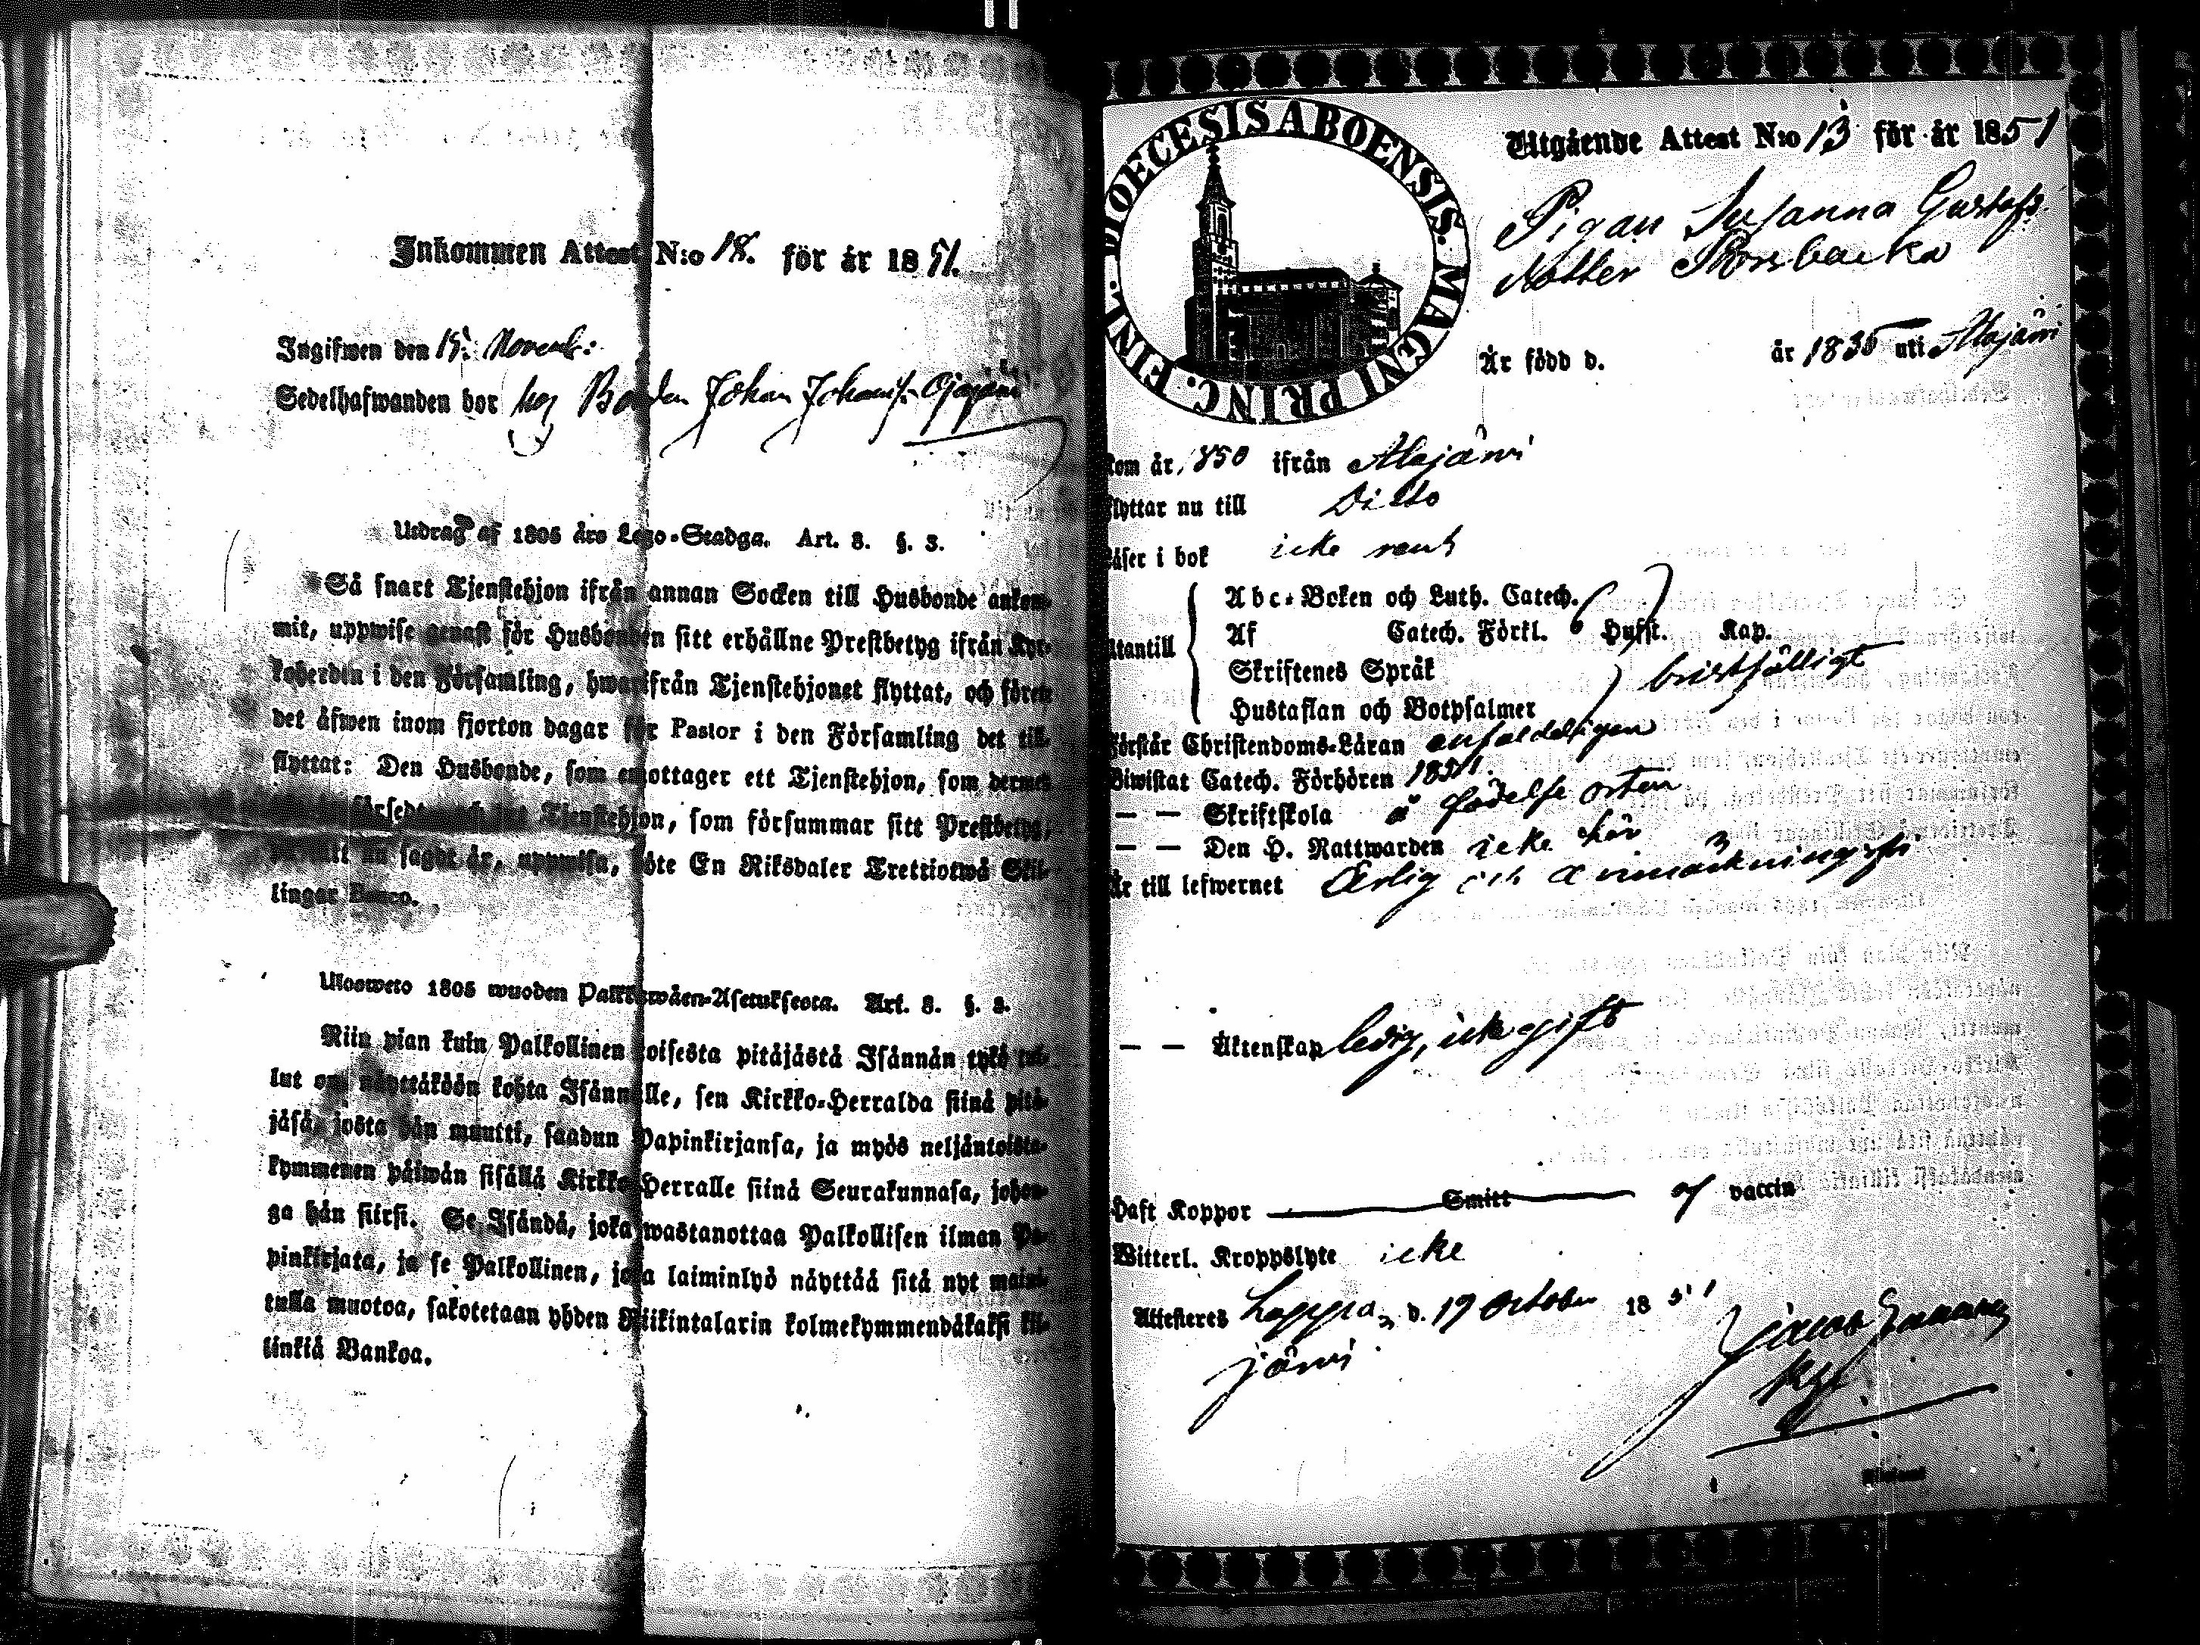 Inkommen Attest N:o 18. för år 1851.
Ingifwen den 15: Novemb:
Sedelhafwanden bor hos Bonden Johan Johanss: Ojajärvi
Utdrag af 1805 års Lego-Stadga. Art. 8. §. 3.
Så snart Tjenstehjon ifrån annan Socken till Husbonde ankom-
mit, uppwise genast för Husbonden sitt erhållne Prestbetyg ifrån Kyr-
koherden i den Församling, hwarifrån Tjenstehjonet flyttat, och förete
det äfwen inom fjorton dagar för Pastor i den Församling det till-
flyttat: Den Husbonde, som emottager ett Tjenstehjon, som dermed
Tjenstehjon, som försummar sitt Prestbetyg,
nu sagdt är, uppwisa, böte En Riksdaler Trettiotwå Skil-
lingar Banco.
Ulosweto 1805 wuoden Palkkawäen-Asetuksesta. Art. 8. §. 3.
Niin pian kuin Palkollinen toisesta pitäjästä Isännän tykö tul-
lut on, näyttäköön kohta Isännälle, sen Kirkko-Herralda siinä pitä-
jäsä, josta hän muutti, saadun Papinkirjansa, ja myös neljäntoista-
kymmenen päiwän sisällä Kirkko-Herralle siinä Seurakunnasa, johon-
ga hän siirsi. Se Isändä, joka wastanottaa Palkollisen ilman Pa-
pinkirjata, ja se Palkollinen, joka laiminlyö näyttää sitä nyt maini-
tulla muotoa, sakotetaan yhden Riikintalarin kolmekymmendäkaksi kil-
linkiä Bankoa.
DIOECESIS ABOENSIS. MAGNI PRINC. FINL.
Utgående Attest N:o 13 för år 1851
Pigan Susanna Gustafs
dotter Porsbacka
Är född d. år 1835 uti Alajärvi
Kom år 1850 ifrån Alajärvi
flyttar nu till Ditto
Läser i bok icke rent
Utantill
Abc-Boken och Luth. Catech.
Af Catech. Förkl. Hufst. Kap.
Skriftenes Språk bristfälligt
Hustaflan och Botpsalmer
Förstår Christendoms-Läran enfaldeligen
Biwistat Catech. Förhören 1851.
— — Skriftskola å födelse orten
— — Den H. Nattwarden icke här
Är till lefwernet Ärlig och
— — Äktenskap ledig, icke gift
Haft Koppor Smitt af vaccin
Witterl. Kroppslyte icke
Attesteres Lappa- d. 19 October 1851
järvi
Jacob
Kgl.